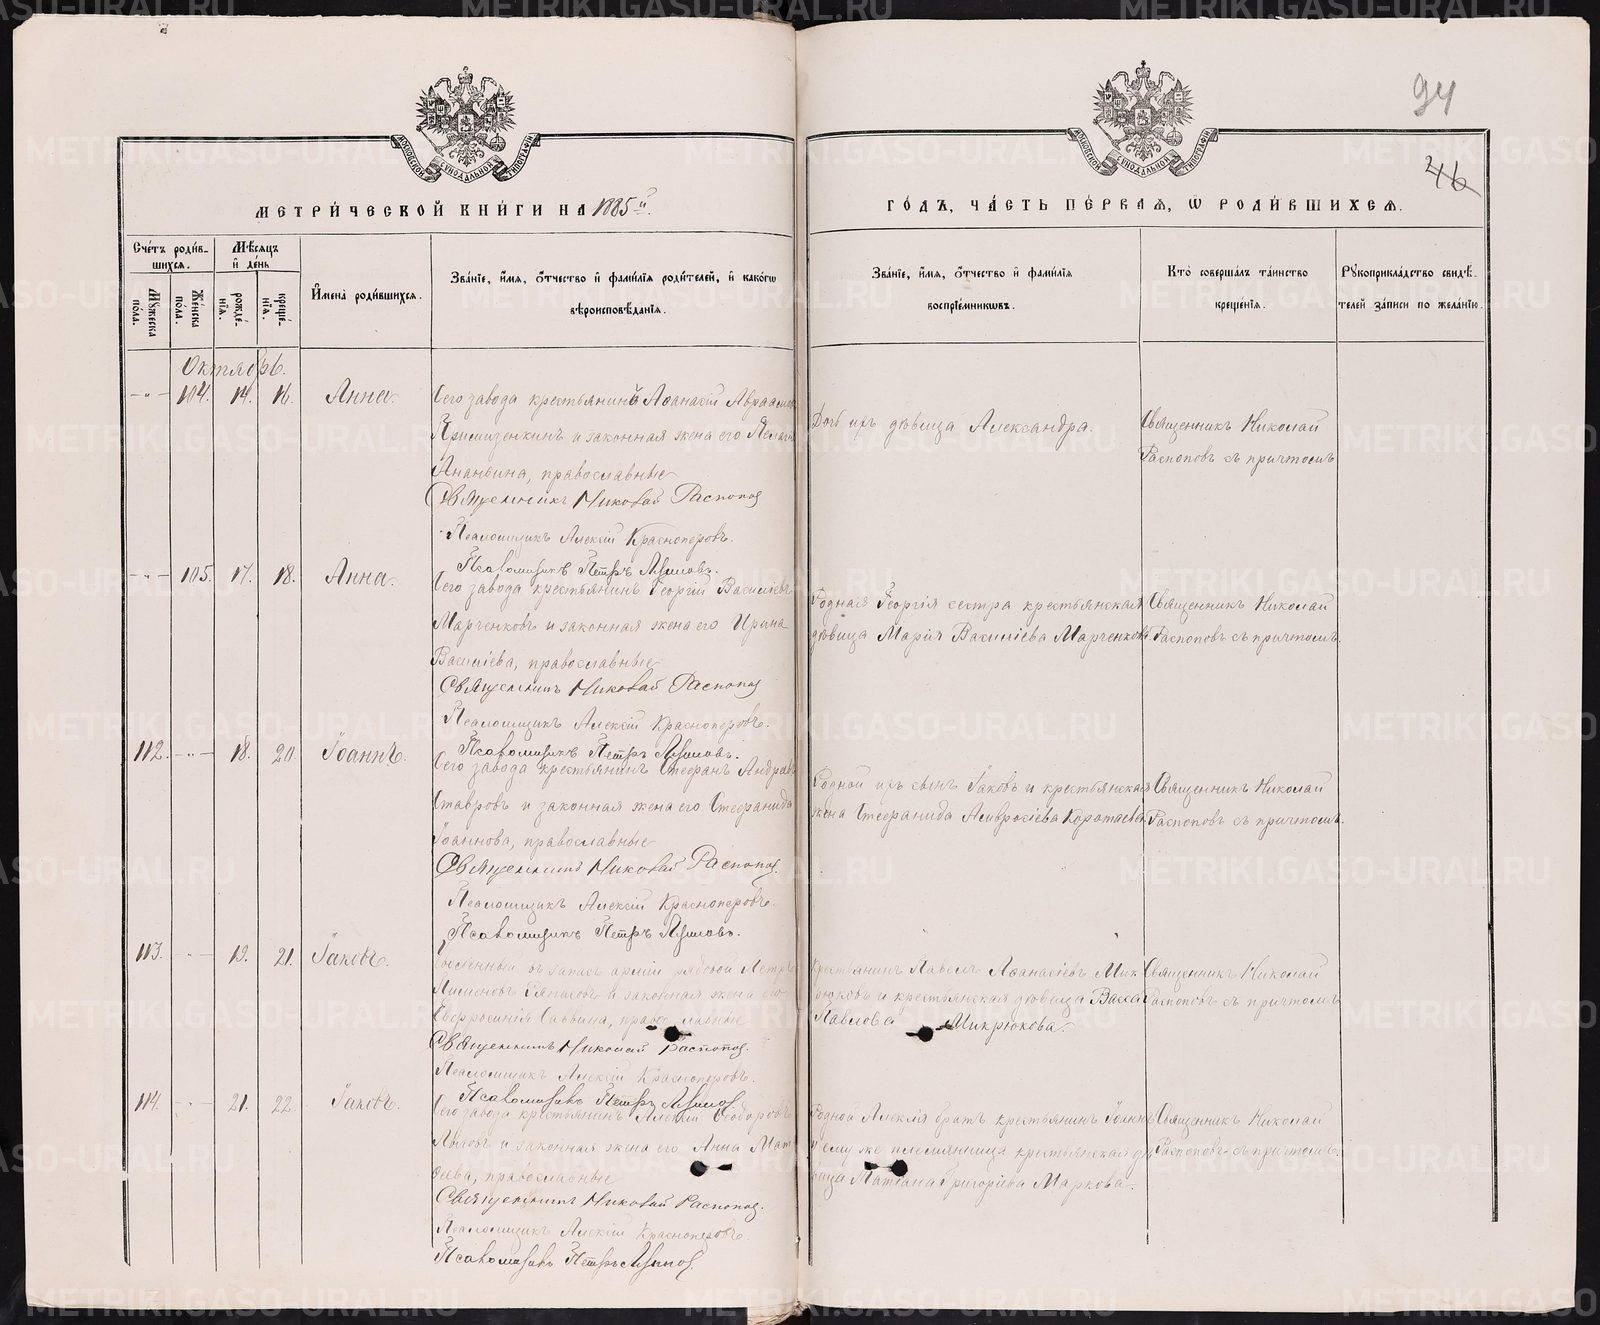 94
46
МОСКОВСКОЙ СѴНОДАЛЬНОЙ ТИПОГРАФІИ
МОСКОВСКОЙ СѴНОДАЛЬНОЙ ТИПОГРАФІИ
МЕТРИ́ЧЕСКОЙ КНИ́ГИ НА 1885й
ГО́ДЪ, ЧА́СТЬ ПЕ́РВАѦ, Ѡ РОДИ́ВШИХСѦ.
Сче́тъ роди́в-
шихсѧ.
Мꙋжеска по́ла.
Же́нска по́ла.
Мѣ́сѧцъ
и де́нь
рожде́нїѧ.
креще́нїѧ.
И҆мена̀ роди́вшихсѧ.
Зва́нїе, и҆́мѧ, ѻ҆́тчество и҆ фами́лїѧ роди́телей, и҆ како́гѡ
вѣроисповѣ́данїѧ.
Зва́нїе, и҆́мѧ, ѻ҆́тчество и҆ фами́лїѧ
воспрїе́мникѡвъ.
Кто̀ соверша́лъ та́инство
креще́нїѧ.
Рꙋкоприкла́дство свидѣ́-
телей за́писи по жела́нїю.
Октябрь.
-"- 104. 14. 16. Анна.
Сего завода крестьянинъ Аѳанасій
и законная жена его
Ананьина, православные
Священникъ Николай Распопов
Псаломщикъ Алексій Красноперовъ.
Псаломщикъ Петръ
Дочь ихъ дѣвица Александра.
Священникъ Николай
Распоповъ съ причтомъ
-"- 105. 17. 18. Анна.
Сего завода крестьянинъ Георгій Васильевъ
Марченковъ и законная жена его Ирина
Васильева, православные
Священникъ Николай Распопов
Псаломщикъ Алексій Красноперовъ.
Псаломщикъ Петръ
Родная Георгія сестра крестьянская
дѣвица Марія Васильева Марченкова
Священникъ Николай
Распоповъ съ причтомъ.
112. -"- 18. 20. Іоаннъ.
Сего завода крестьянинъ Стефанъ Андреевъ
Ставровъ и законная жена его Стефанида
Іоаннова, православные
Священникъ Николай Распопов.
Псаломщикъ Алексій Красноперовъ.
Псаломщикъ Петръ
Родной ихъ сынъ Іаковъ и крестьянская
жена Стефанида Амвросіева Коротаева
Священникъ Николай
Распоповъ съ причтомъ.
113. -"- 19. 21. Іаковъ.
въ запасъ арміи рядовой Петръ
и законная жена его
Евфросинія Саввина, православные
Священникъ Николай Распопов.
Псаломщикъ Алексій Красноперовъ.
Псаломщикъ Петръ
Крестьянинъ Павелъ Аѳанасіевъ Мик
рюковъ и крестьянская дѣвица Васса
Павлова Микрюкова.
Священникъ Николай
Распоповъ съ причтомъ
114. -"- 21. 22. Іаковъ.
Сего завода крестьянинъ Алексій Ѳеодоровъ
и законная жена его Анна Мат
ѳеева, православные
Священникъ Николай Распопов.
Псаломщикъ Алексій Красноперовъ.
Псаломщикъ Петръ
Родной Алексія братъ крестьянинъ Іоаннъ
и ему же племянница крестьянская дѣ
вица Григоріева Маркова.
Священникъ Николай
Распоповъ съ причтомъ.
METRIKI.GASO-URAL.RU